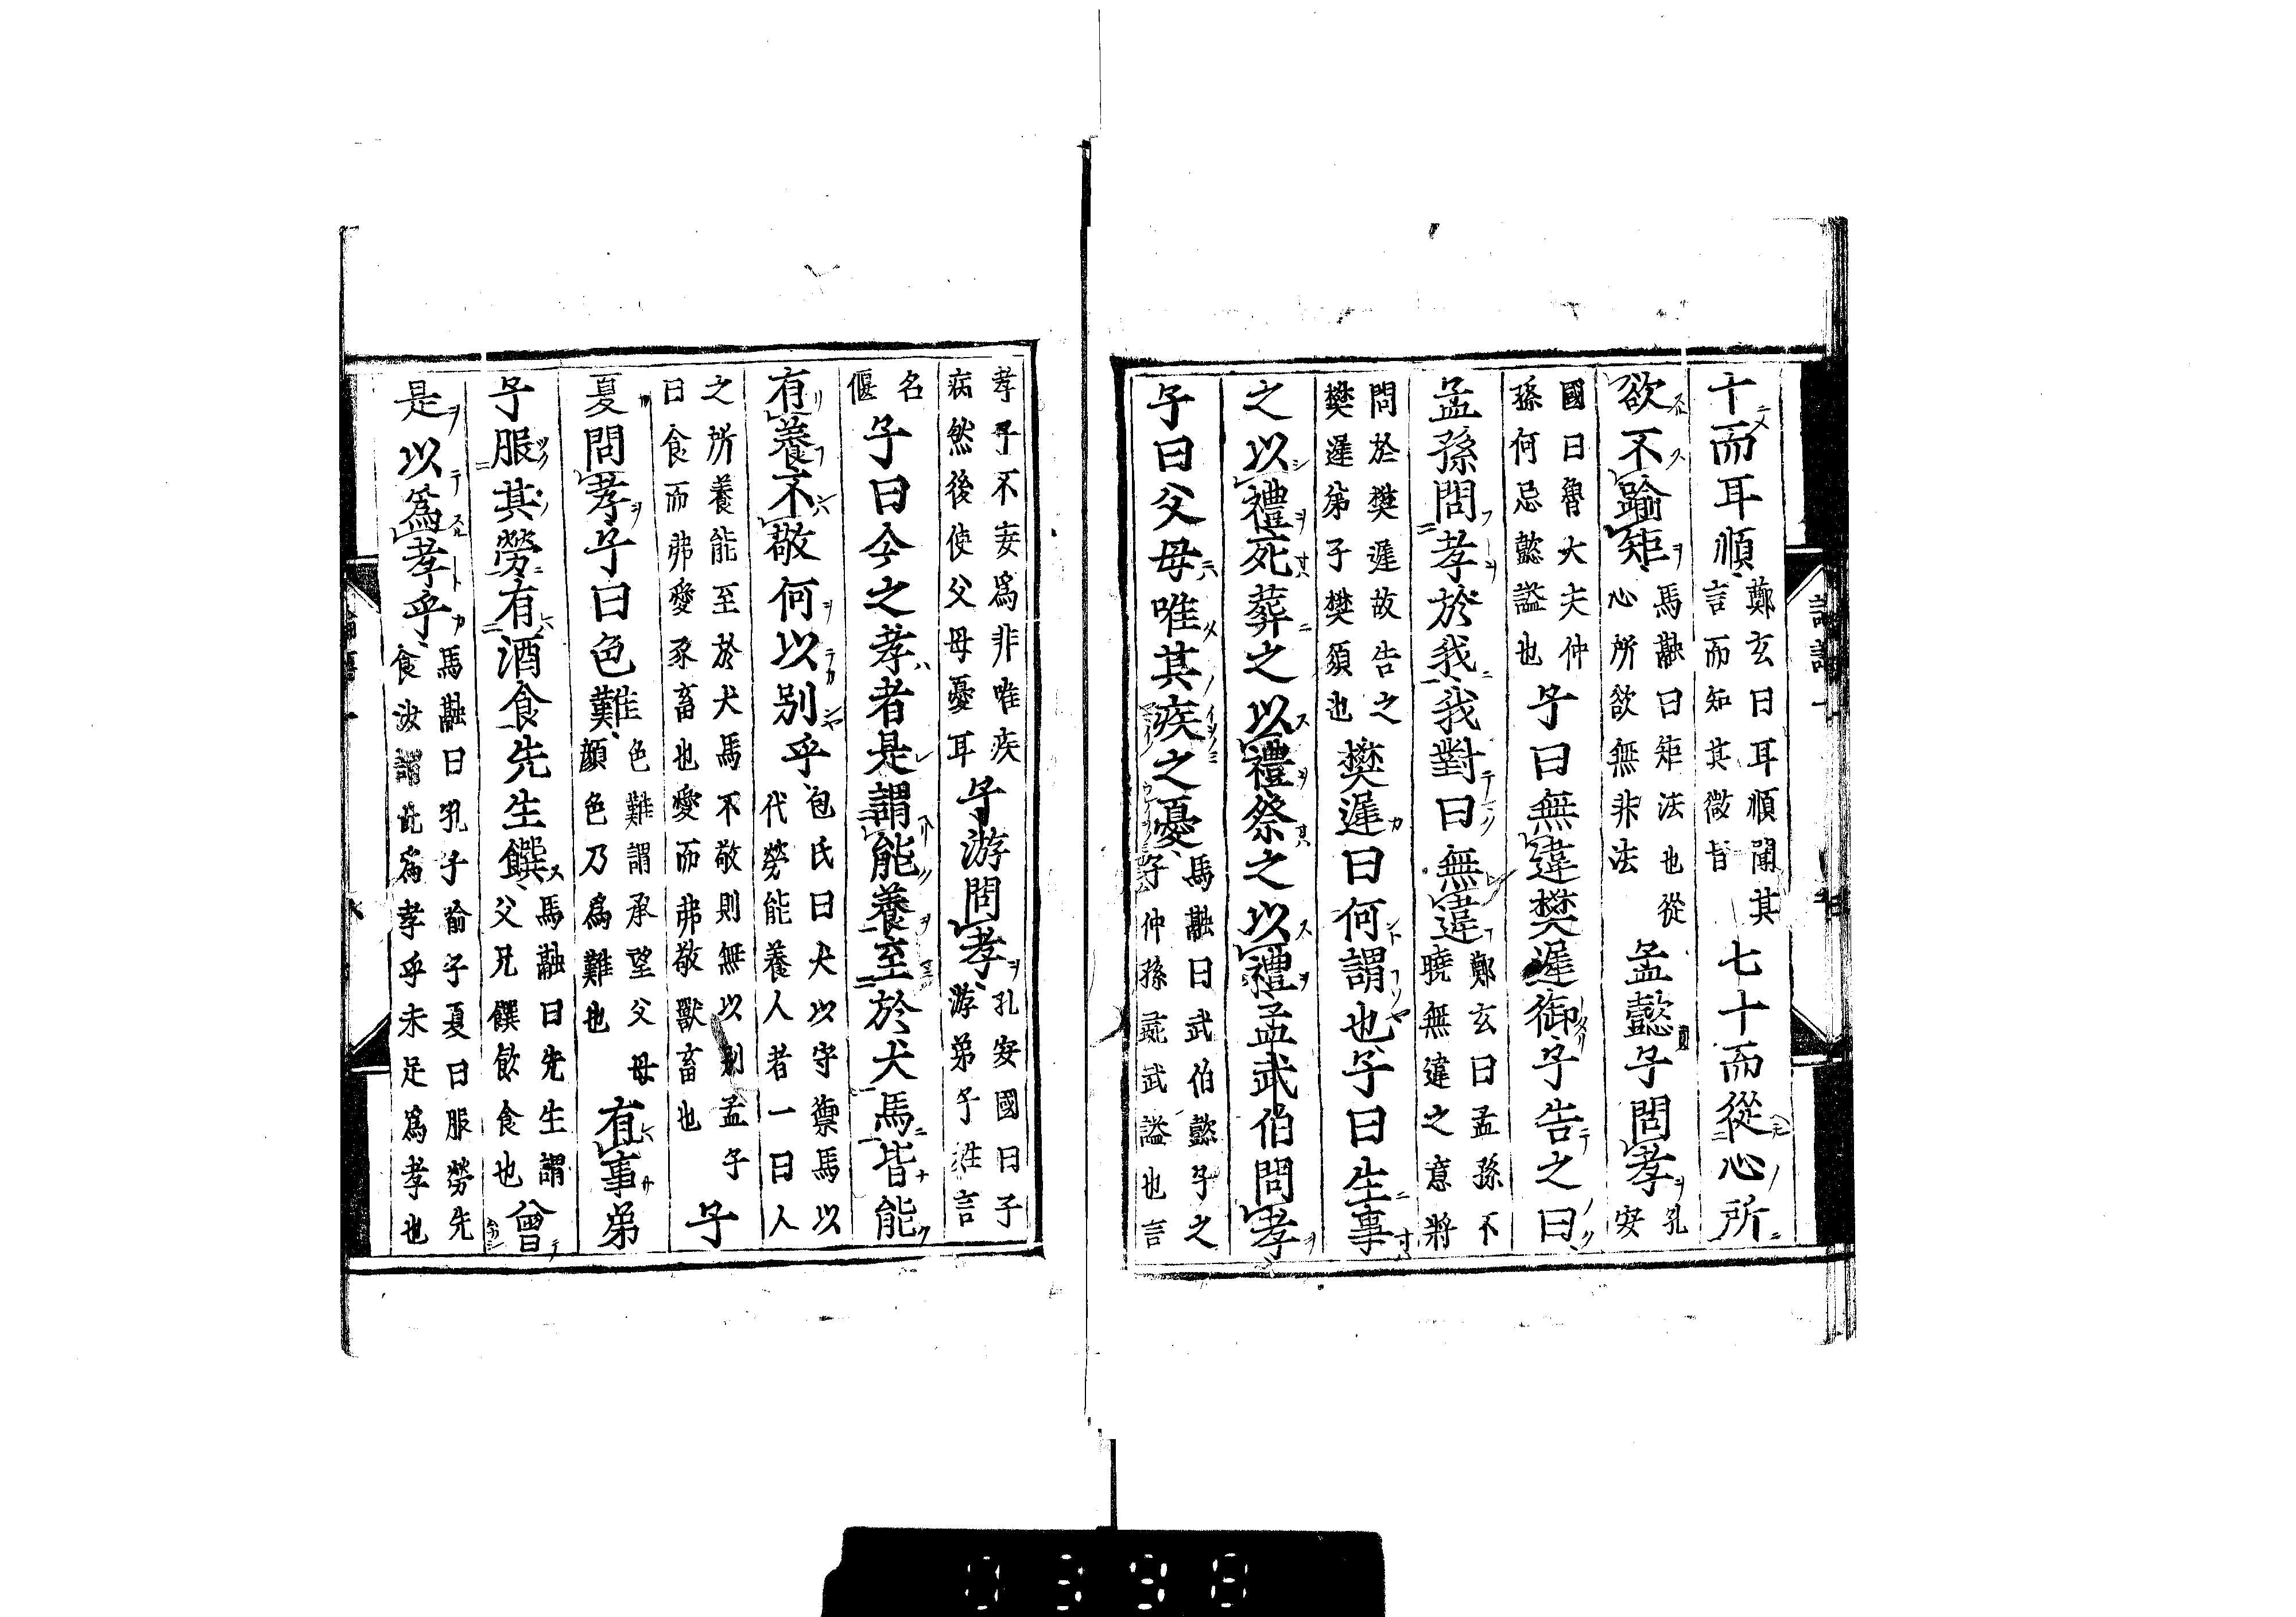 十而耳順鄭玄曰耳順聞其言而知其微旨七十而從心所
欲不踰矩馬融曰矩法也從心所欲無非法孟懿子問孝孔安
國曰魯大夫仲孫何忌懿謚也子曰無違樊遲御子告之曰
孟孫問孝於我我對曰無違鄭玄曰孟孫不曉無違之意將
問於樊遲故告之樊遲弟子樊須也樊遲曰何謂也子曰生事
之以禮死葬之以禮祭之以禮孟武伯問孝
子曰父母唯其疾之憂馬融曰武伯懿子之子仲孫彘武謚也言
孝子不妄爲非唯疾病然後使父母憂耳子游問孝孔安國曰子游弟子姓言
名偃子曰今之孝者是謂能養至於犬馬皆能
有養不敬何以別乎包氏曰犬以守禦馬以代勞能養人者一曰人
之所養能至於犬馬不敬則無以別孟子曰食而弗愛豕畜也愛而弗敬獸畜也子
夏問孝子曰色難色難謂承望父母顏色乃爲難也有事弟
子服其勞有酒食先生饌馬融曰先生謂父兄饌飲食也曾
是以爲孝乎馬融曰孔子喻子夏曰服勞先食汝謂此爲孝乎未足爲孝也
0398